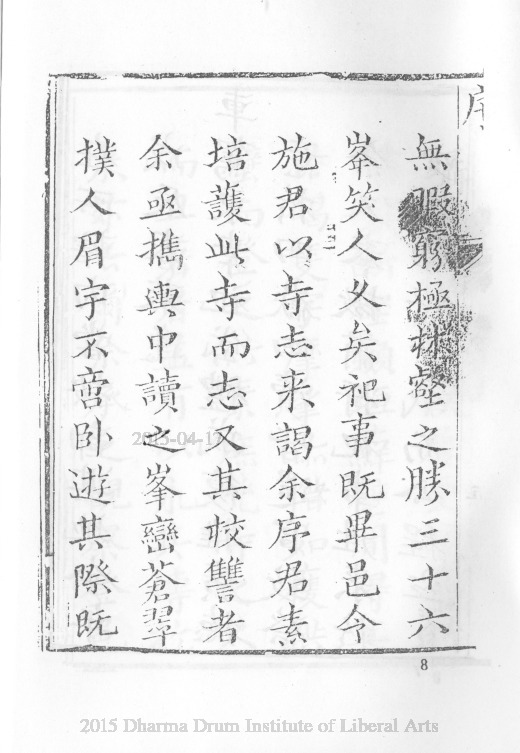 序
無暇窮極林壑之勝三十六
峯笑人久矣祀事既畢邑令
施君以寺志来謁余序君素
培護此寺而志又其校讐者
余亟攜輿中讀之峯巒蒼翠
撲人眉宇不啻卧遊其際既
8
2015-04-17
2015 Dharma Drum Institute of Liberal Arts